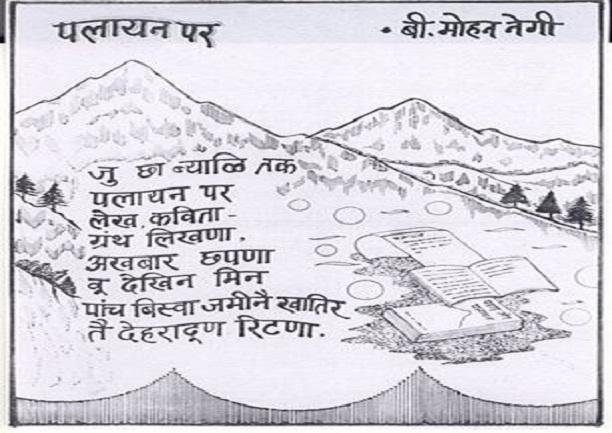 पलायन पर
• बी. मोहन नेगी
जु छा ब्याळि तक
पलायन पर
लेख, कविता -
ग्रंथ लिखणा,
अखबार छपणा
वू देखिन मिन
पांच बिस्वा जमीनै खातिर
तै देहरादूण रिटणा.